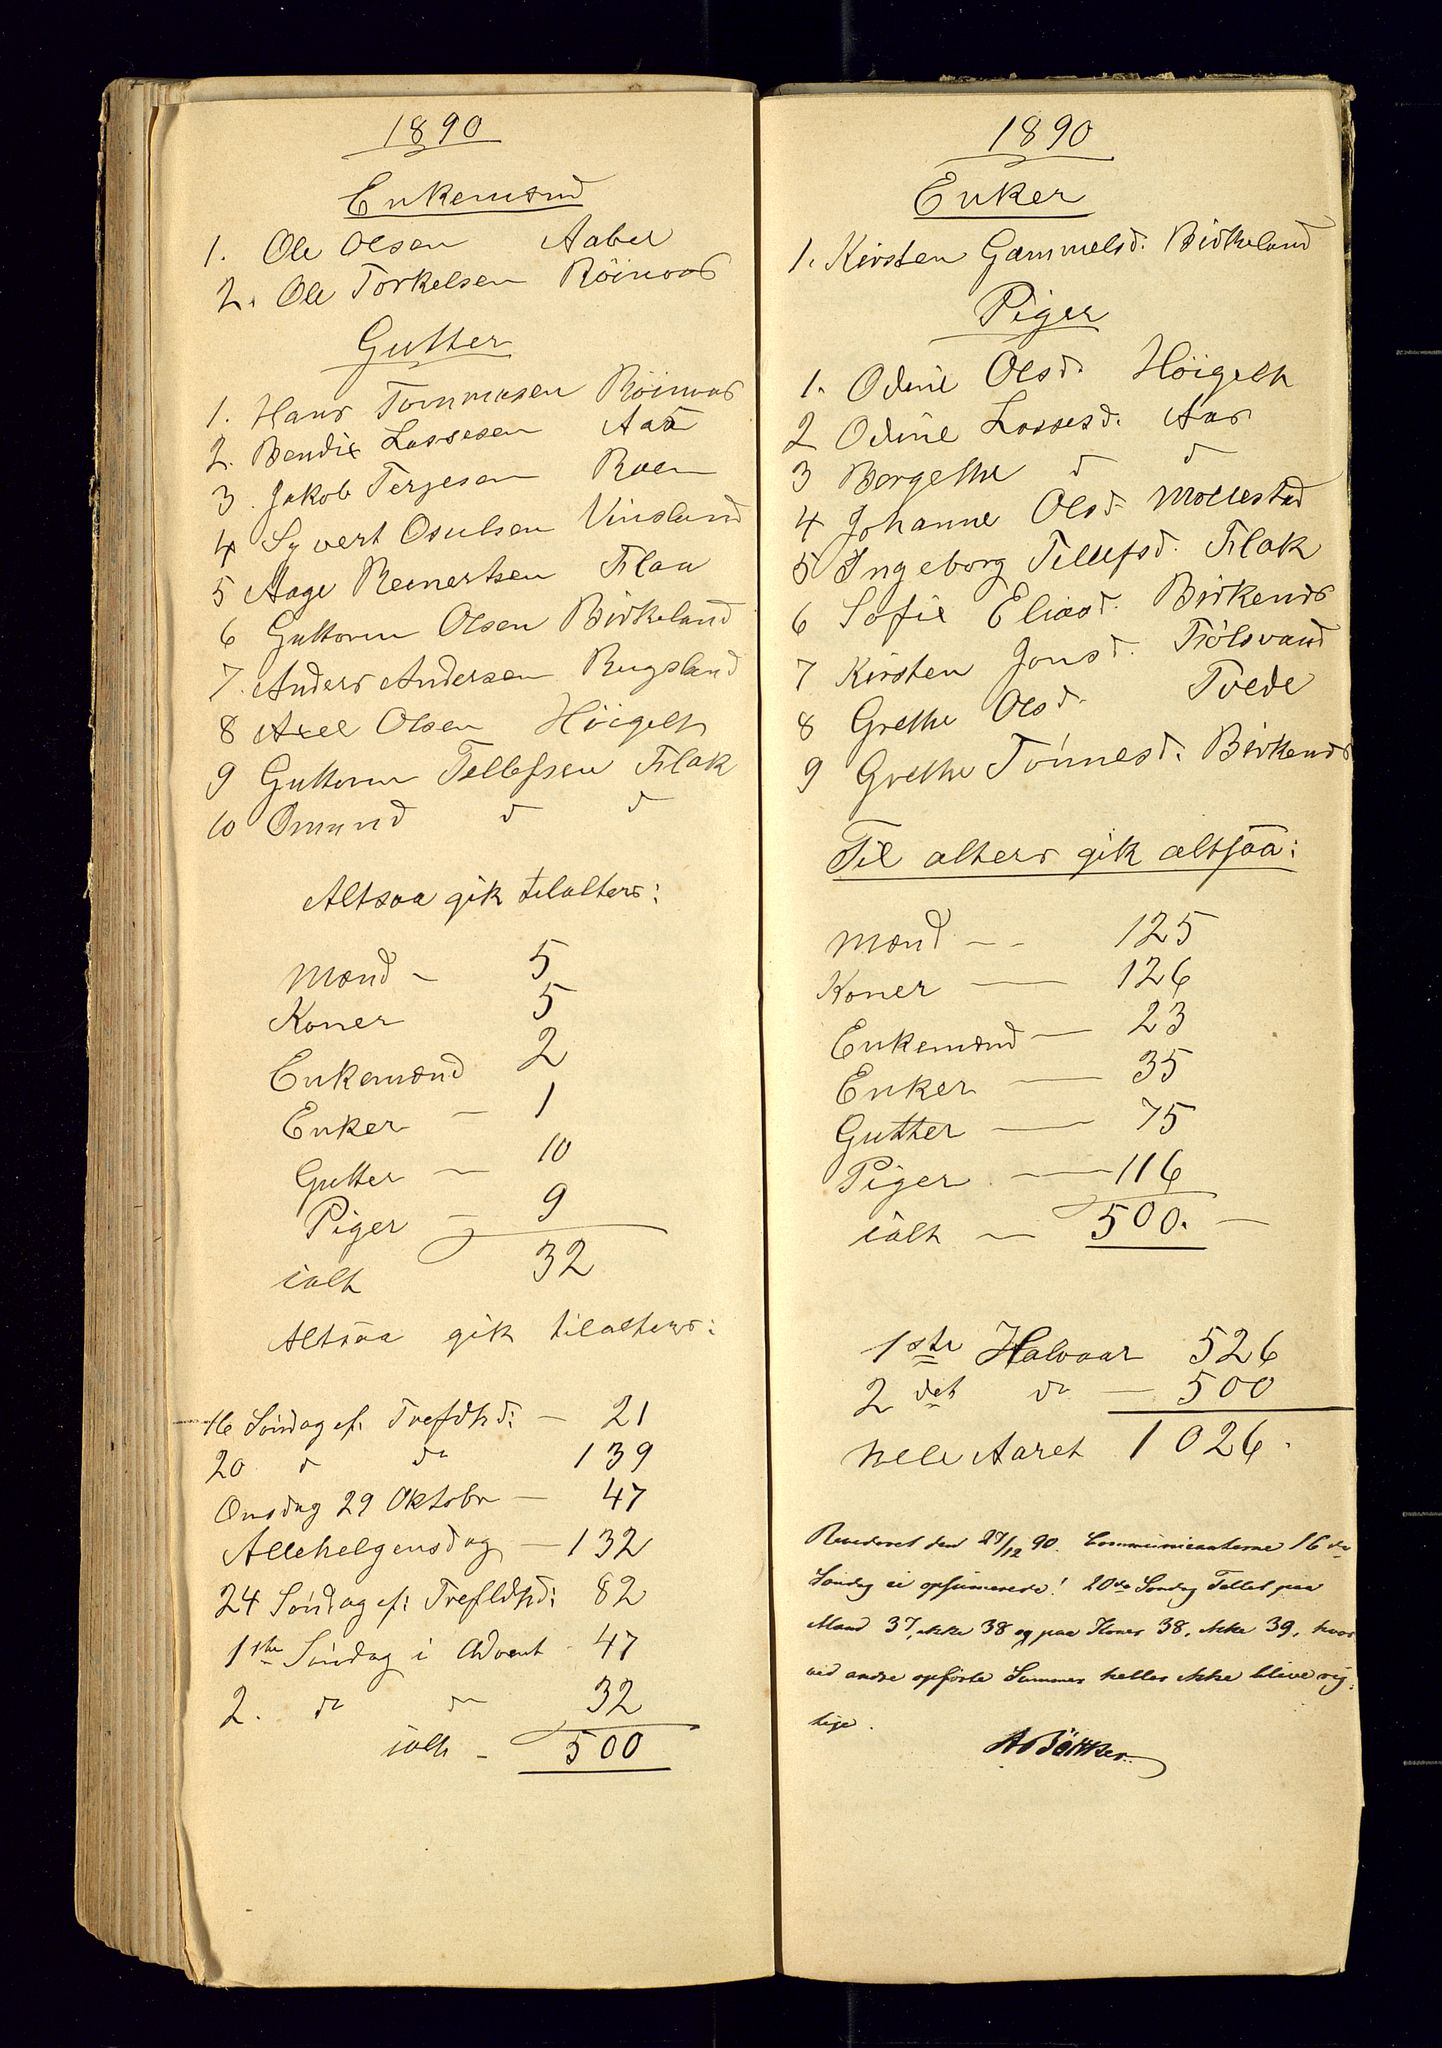 1890
Enkemænd
1. Ole Olsen Aabel
2. Ole Torkelsen Röinaas
Gutter
1. Hans Tommesen Röinaas
2. Bendix Lassesen Aas
3. Jakob Terjesen Roen
4 Syvert Osulsen Vinsland
5 Aage Reinertsen Flaa
6 Guttorm Olsen Birkeland
7. Anders Andersen Rugsland
8 Axel Olsen Höigelt
9 Guttorm Tellefsen Flak
10 Omund d d
Altsaa gik tilalters:
Mænd - 5
Koner 5
Enkemænd 2
Enker - 1
Gutter - 10
Piger - 9
ialt 32
Altsaa gik tilalters:
16 Söndag ef: Trefdhd: - 21
20 d do 139
Onsdag 29 Oktobr - 47
Allehelgensdag - 132
24 Söndag ef: Trefldhd: 82
1ste Söndag i Advent - 47
2. do do 32
ialt - 500
1890
Enker
1. Kirsten Gammelsd. Birkeland
Piger
1. Odine Olsd. Höigelt
2 Odine Lassesd. Aas
3 Bergethe d d
4 Johanne Olsd. Mollestad
5 Ingeborg Tellefsd. Flak
6 Sofie Eliasd. Birkenes
7 Kirsten Jonsd. Tjölsvand
8 Grethe Olsd. Tvede
9 Grethe Tönnesd. Birkenes
Til alters gik altsaa:
Mænd - - 125
Koner - 126
Enkemænd - 23
Enker - 35
Gutter - 75
Piger - 116
ialt - 500. -
1ste Halvaar 526
2det do - 500
hele Aaret 1026.
Revideret den 27/12 90. Communicanterne 16de
Söndag ei opsummerede! 20de Söndag Tallet paa
Mænd 37, ikke 38 og paa Koner 38, ikke 39, hvor-
ved andre opförte Summer heller ikke blive rig-
tige.
A Bötker